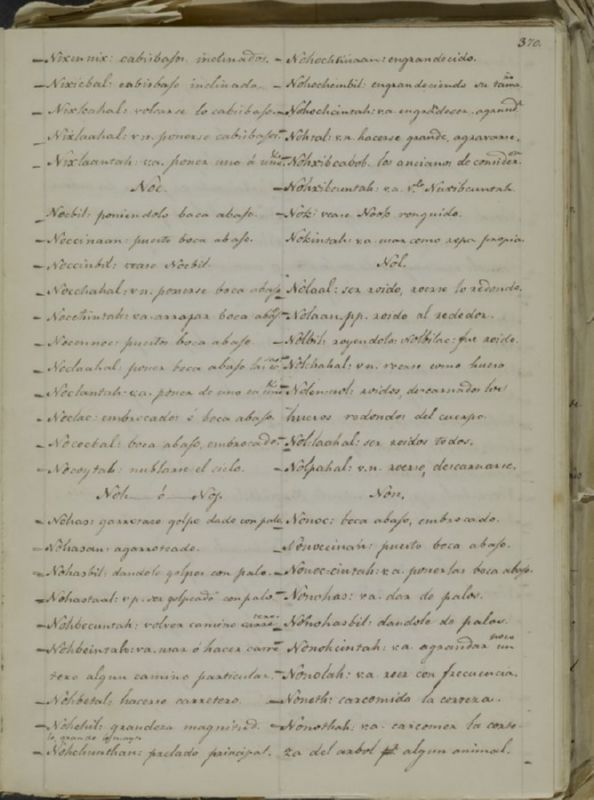 370.
Nixennix: cabisbajos inclinados.
Nixicbal: cabisbajo inclinado.
Nixkahal: volcarse lo cabisbajo.
Nixlaahal: v.n. ponerse cabisbajos
Nixlaantah: v.a. poner uno á uno
Noc.
Nocbil: poniendolo boca abajo.
Noccinaan: puesto boca abajo.
Noccinbil: vease Nocbil
Nocchahal: v.n. ponerse boca abajo
Noccħintah: v.a. arrojar boca abajo
Nocennoc: puestos boca abajo.
Noclaahal: poner boca abajo
Noclantah: v.a. poner de uno en uno
Noclac: embrocados ó boca abajo.
Nococbal: boca abajo, embrocado.
Nocoytah: nublarse el cielo.
Noh ó Nop
Nohas: garrotazo golpe dado con palo.
Nohasan: agarroteado.
Nohasbil: dandole golpes con palo.
Nohastaal: v.p. ser golpeado con palo.
Nohbecuntah: volver camino carretero
Nohbeintah: v.a. usar ó hacer carre
tero algun camino particular.
Nohbetal: hacerse carretero.
Nohchil: grandeza magnitud.
lo grande
Nohchunthan: prelado principal.
Nohochcinaan: engrandecido.
Nohochcinbil: engrandeciendo su tamaño
Nohochcintah: v.a. engrandecer, agrand.
Nohtal: v.a. hacerse grande, agravarse.
Nohxibcabob: los ancianos de consideron.
Nohxibcuntah: v.a. Nuxibcuntah.
Nok: vease Nook ronquido.
Nokintah: v.a. usar como ropa propia.
Nol.
Nolaal: ser roido, roerse lo redondo.
Nolaan: pp. roido al rededor.
Nolbil: royendolo: Nolbilac: fue roido.
Nolchahal: v.n. roerse como hueso
Nolennol: roidos, descarnados los
huesos redondos del cuerpo.
Nollaahal: ser roidos todos.
Nolpahal: v.n. roerse, descarnarse.
Non.
Nonoc: boca abajo, embrocado.
Nonoccinan: puesto boca abajo.
Nonoc-cintah: v.a. ponerlos boca abajo.
Nonohas: v.a. dar de palos.
Nonohasbil: dandole de palos.
Nonohcintah: v.a. agrandar un poco
Nonolah: v.a. roer con frecuencia.
Nonoth: carcomido la corteza.
Nonothah: v.a. carcomer la corte
za del arbol algun animal.